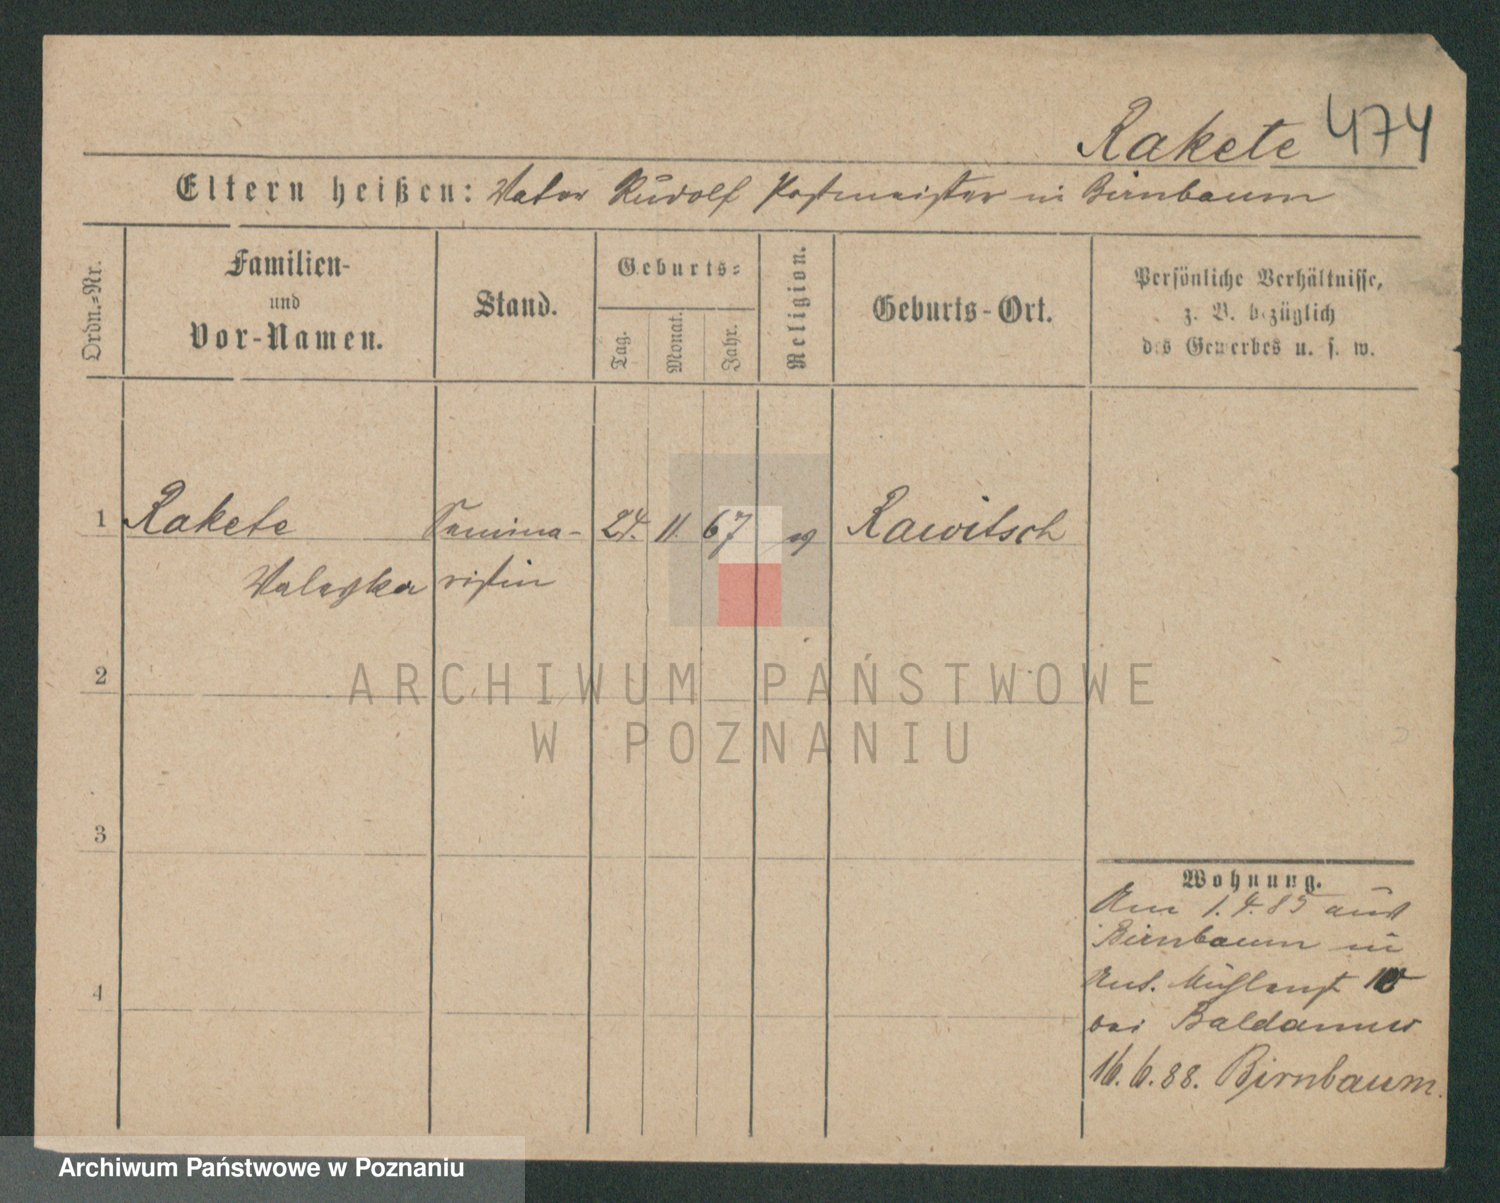 Rakete 474
Eltern heißen: Vater Rudolf Postmeister in Birnbaum
Ordn.-Nr.
Familien-
und
Vor-Namen.
Stand.
Geburts-
Tag.
Monat.
Jahr.
Religion.
Geburts-Ort.
Persönliche Verhältnisse,
z. B. bezüglich
des Gewerbes u. s. w.
1 Rakete Semina- 24. 11. 67 Rawitsch
Valeska ristin
2
3
4
Wohnung.
1.4.85 aus
Birnbaum in
bei
16.6.88. Birnbaum.
ARCHIWUM PAŃSTWOWE
W POZNANIU
Archiwum Państwowe w Poznaniu